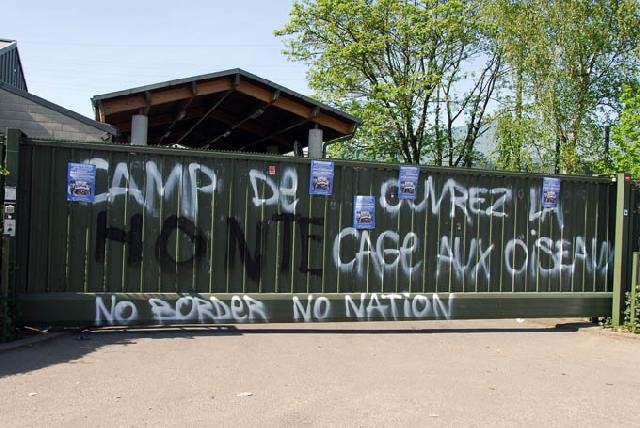 CAMP De
HONTE
OUVREZ LA
CAGe AUX OiSEAUX
NO BORDER NO NATiON